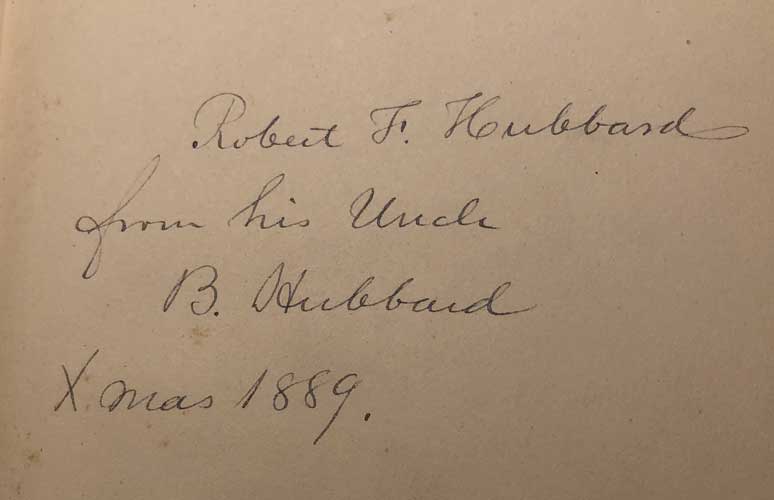 Robert F. Hubbard
from his Uncle
B. Hubbard
Xmas 1889.